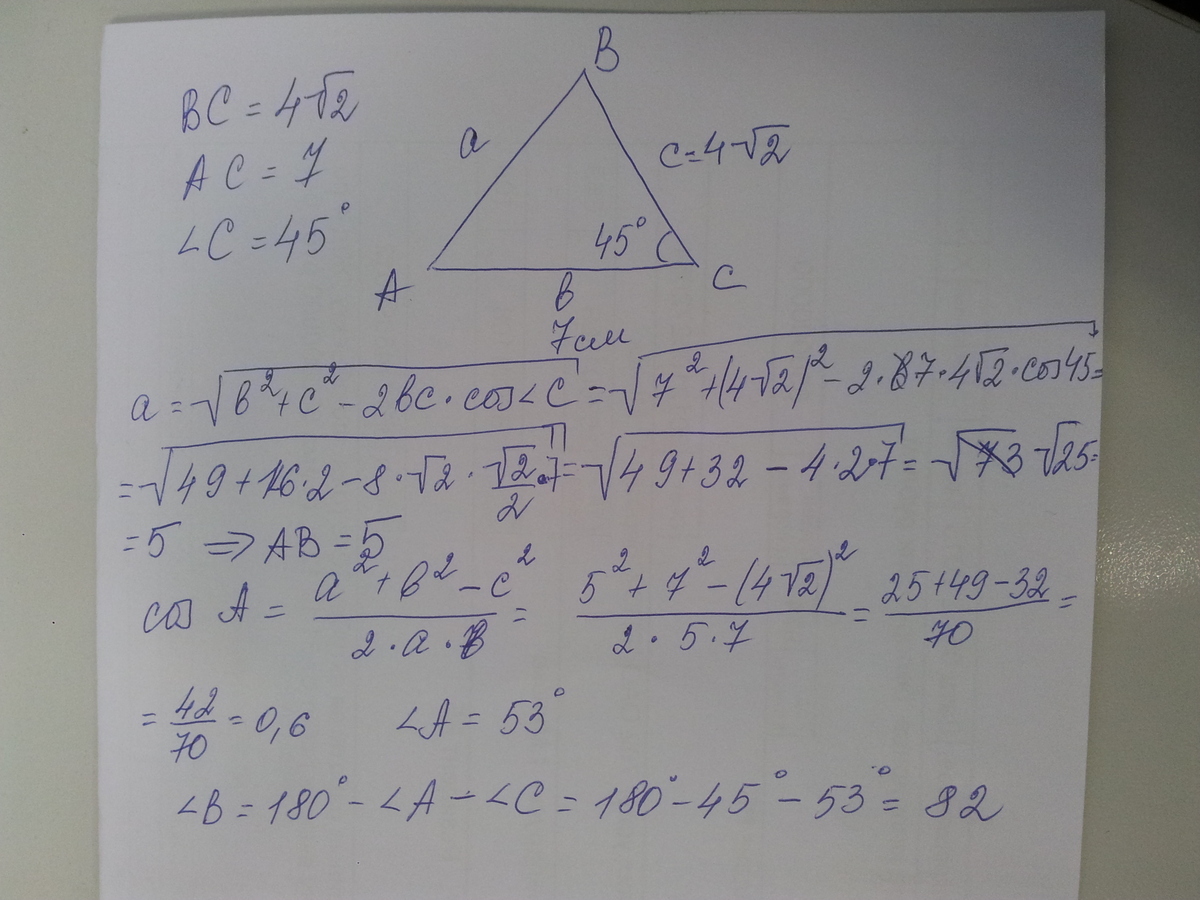 BC = 4√2
AC = 7
∠C = 45°
B
a
c=4√2
45°
A
в
C
7см
a = √(в²+c² − 2вc·cos∠C) = √(7²+(4√2)² − 2·7·4√2·cos45 =
= √(49+16·2−8·√2·√2/2·7) = √(49+32 − 4·2·7) = √73 √25 =
= 5 ⇒ AB = 5
cos A = (a²+в²−c²)/(2·a·в) = (5²+7²−(4√2)²)/(2·5·7) = (25+49−32)/70 =
= 42/70 = 0,6 ∠A = 53°
∠B = 180° − ∠A − ∠C = 180° − 45° − 53° = 82